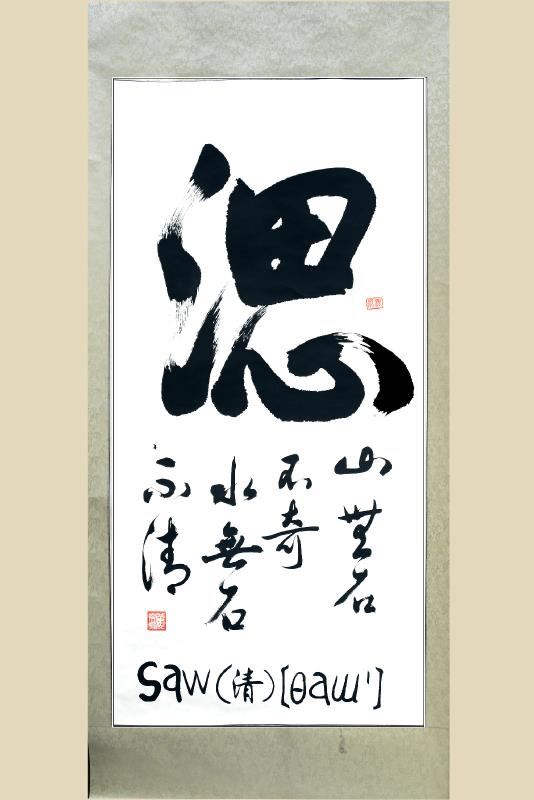 㴓
山無石
不奇
水無石
不清
saw(清)[θaɯ¹']